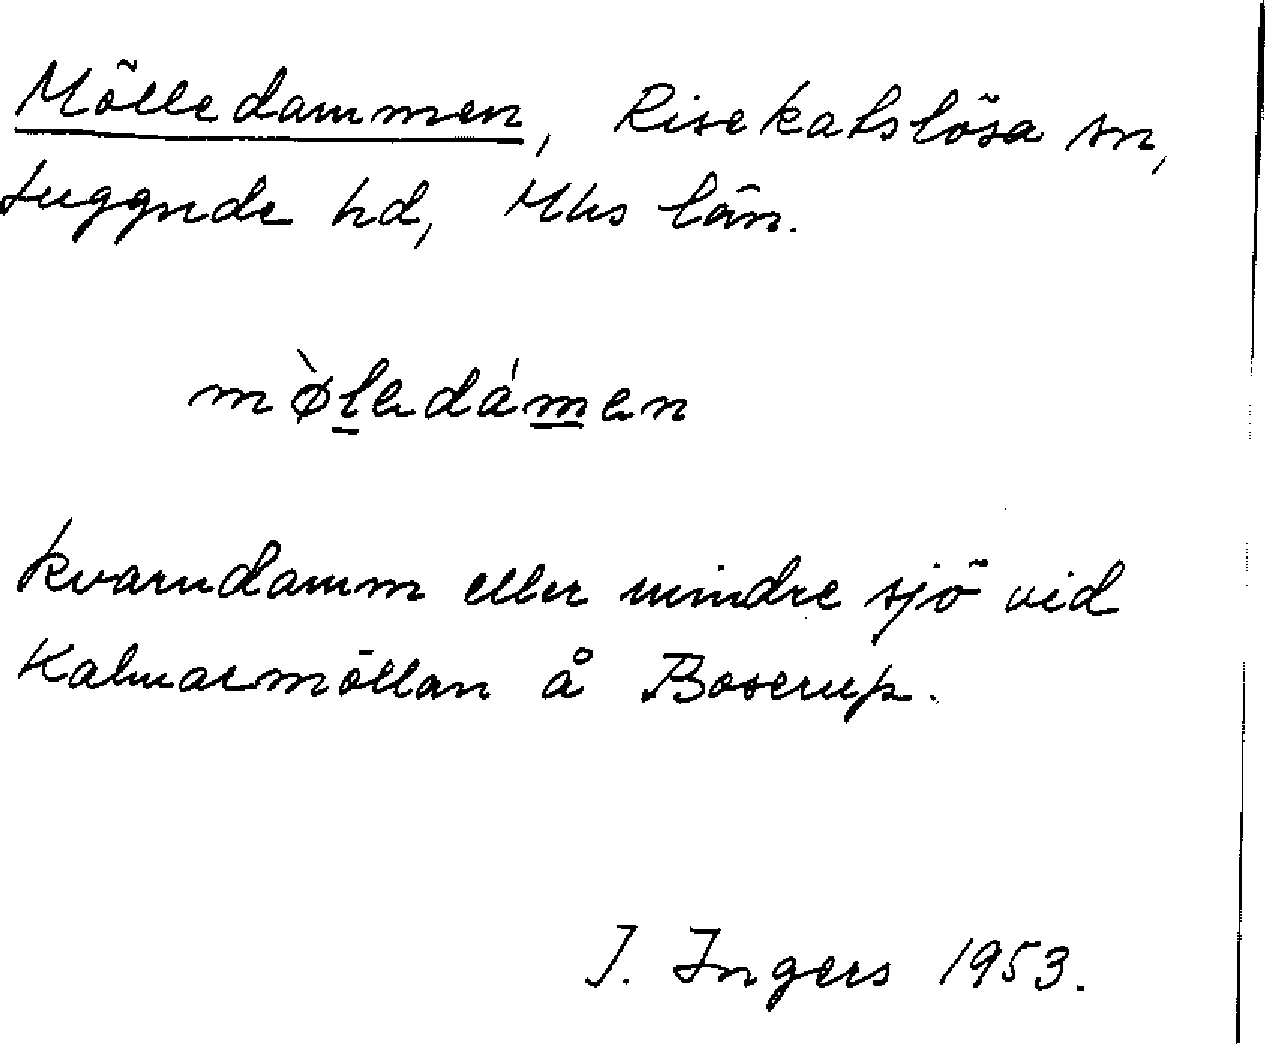 Mölledammen, Risekatslösa sn,
Luggude hd, Mhs län.
mø̀l̲edám̲en
kvarndamm eller mindre sjö vid
Kalmarmöllan å Boserup.
I. Ingers 1953.